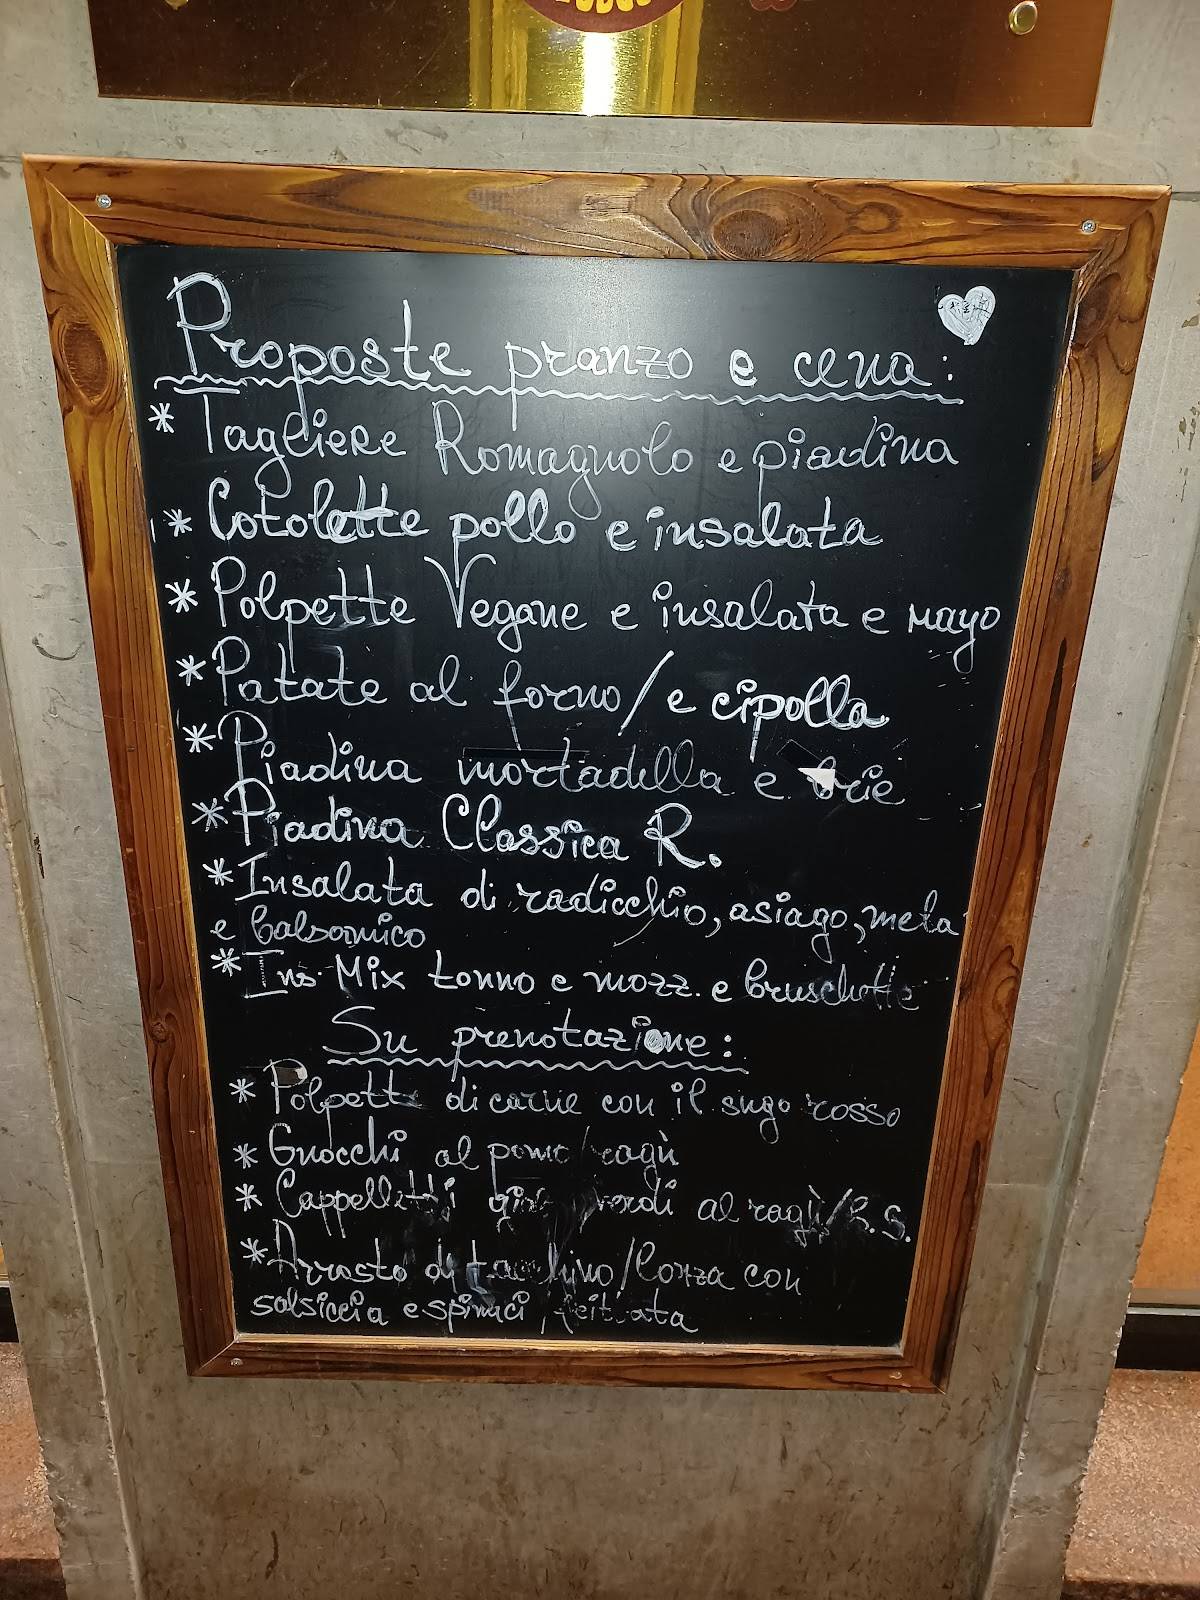 Proposte pranzo e cena:
* Tagliere Romagnolo e piadina
* Cotolette pollo e insalata
* Polpette Vegane e insalata e mayo
* Patate al forno/e cipolla
* Piadina mortadella e brie
* Piadina Classica R.
* Insalata di radicchio, asiago, mela
e balsamico
* Ins. Mix tonno e mozz. e bruschette
Su prenotazione:
* Polpette di carne con il sugo rosso
* Gnocchi al pomo/ragù
* Cappelletti verdi al ragù/B.S.
* Arrosto di tacchino/lonza con
salsiccia e spinaci